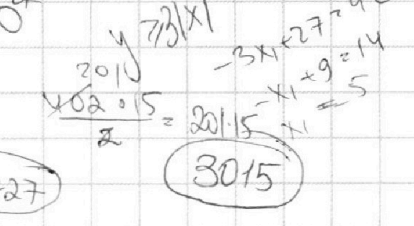 y ≥ 3|x|
-3x₁ + 27 =
-x₁ + 9 = 14
-x₁ = 5
201
402 · 15 / 2 = 201·15
3015
27